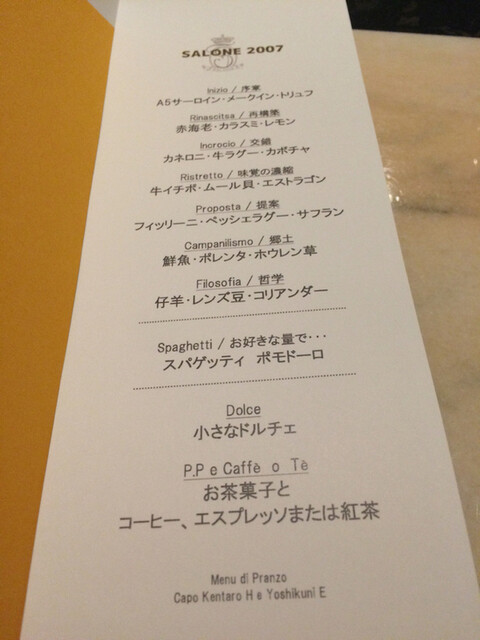 SALONE 2007
Inizio / 序章
A5サーロイン・メークイン・トリュフ
Rinascitsa / 再構築
赤海老・カラスミ・レモン
Incrocio / 交錯
カネロニ・牛ラグー・カボチャ
Ristretto / 味覚の濃縮
牛イチボ・ムール貝・エストラゴン
Proposta / 提案
フィッリーニ・ペッシェラグー・サフラン
Campanilismo / 郷土
鮮魚・ポレンタ・ホウレン草
Filosofia / 哲学
仔羊・レンズ豆・コリアンダー
Spaghetti / お好きな量で・・・
スパゲッティ ポモドーロ
Dolce
小さなドルチェ
P.P e Caffè o Tè
お茶菓子と
コーヒー、エスプレッソまたは紅茶
Menu di Pranzo
Capo Kentaro H e Yoshikuni E